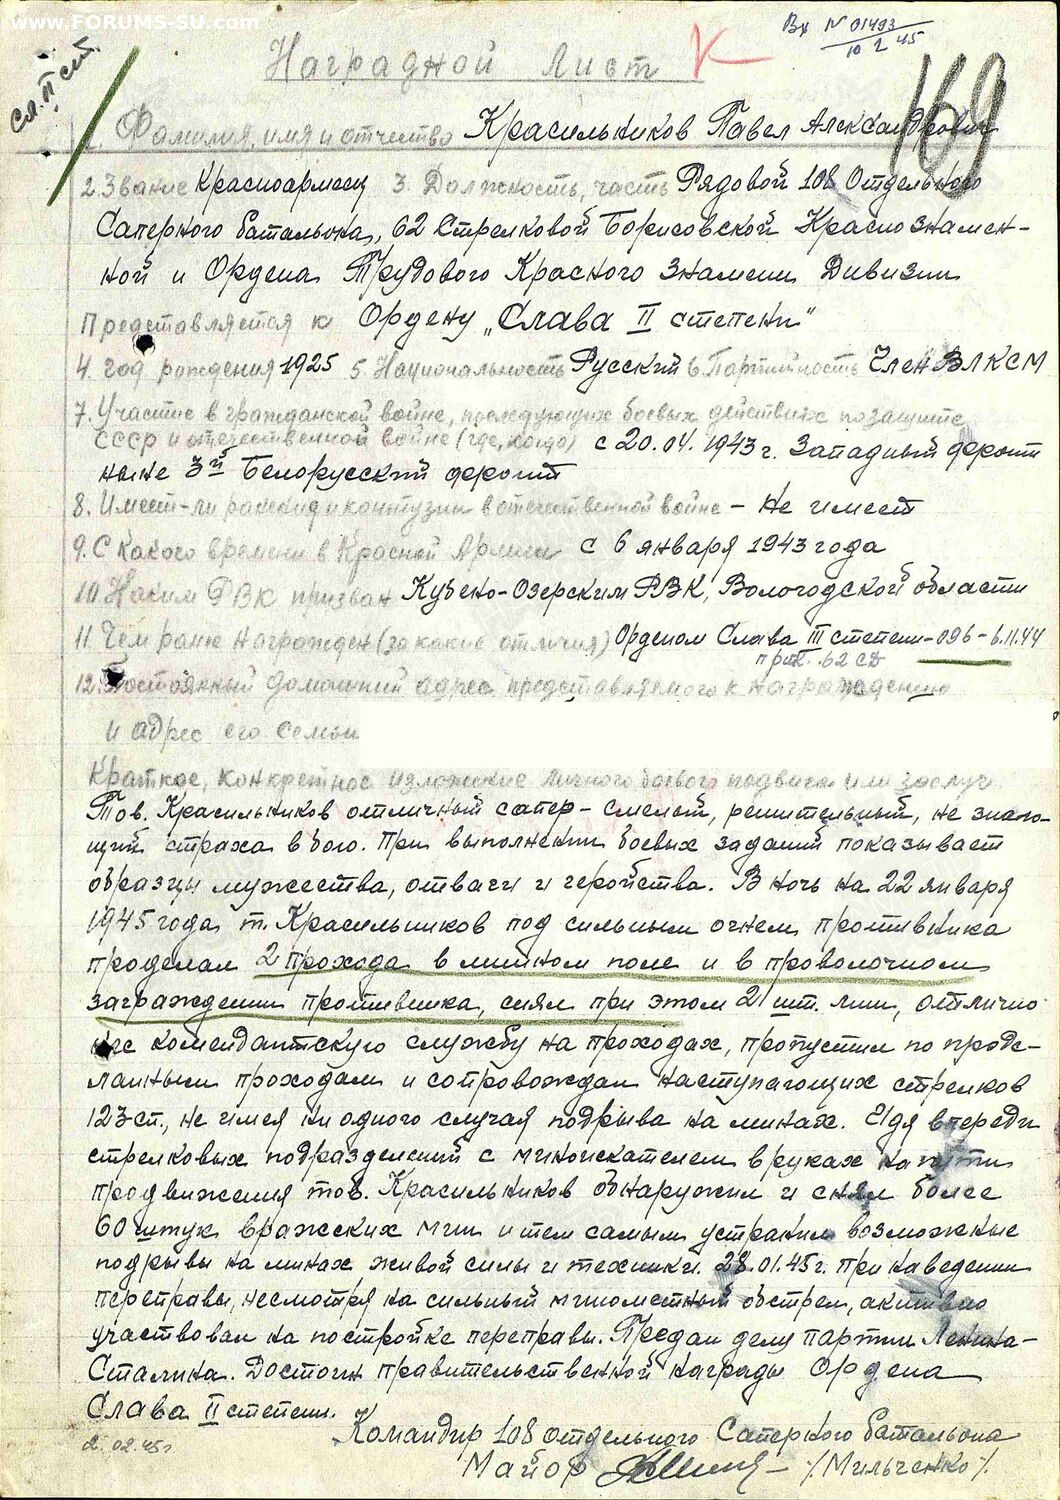 www.FORUMS-SU.com
Вх N 01493
10 2 45
Сл. II ст.
Наградной Лист К
169
1. Фамилия, имя и отчество Красильников Павел Александрович
2. Звание Красноармеец 3. Должность, часть Рядовой 108 Отдельного
Саперного батальона, 62 Стрелковой Борисовской Краснознамен-
ной и Ордена Трудового Красного Знамени Дивизии
Представляется к Ордену „Слава II степени"
4. Год рождения 1925 5. Национальность Русский 6. Партийность Член ВЛКСМ
7. Участие в гражданской войне, последующих боевых действиях по защите
СССР и отечественной войне (где, когда) с 20.04.1943 г. Западный фронт
ныне 3й Белорусский фронт
8. Имеет-ли ранения и контузии в отечественной войне – Не имеет
9. С какого времени в Красной Армии с 6 января 1943 года
10. Каким РВК призван Кубено-Озерским РВК, Вологодской области
11. Чем ранее награжден (за какие отличия) Орденом Слава III степени – 096 – 6.11.44
прик. 62 СД
12. Постоянный домашний адрес представляемого к награждению
и адрес его семьи
Краткое, конкретное изложение личного боевого подвига или заслуг
Тов. Красильников отличный сапер – смелый, решительный, не знаю-
щий страха в бою. При выполнении боевых заданий показывает
образцы мужества, отваги и геройства. В ночь на 22 января
1945 года т. Красильников под сильным огнем противника
проделал 2 прохода в минном поле и в проволочном
заграждении противника, сняв при этом 21 шт. мин, отлично
нес комендантскую службу на проходах, пропустил по проде-
ланным проходам и сопровождал наступающих стрелков
123 сп., не имея ни одного случая подрыва на минах. Идя впереди
стрелковых подразделений с миноискателем в руках на пути
продвижения тов. Красильников обнаружил и снял более
60 штук вражеских мин и тем самым устранил возможные
подрывы на минах живой силы и техники. 28.01.45 г. при наведении
переправы, несмотря на сильный минометный обстрел, активно
участвовал на постройке переправы. Предан делу партии Ленина-
Сталина. Достоин правительственной награды Ордена
Слава II степени.
Командир 108 отдельного Саперного батальона
2.02.45 г.
Майор /Мильченко/.